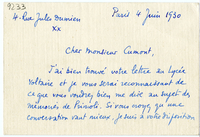 9233
4 Rue Jules Dumien Paris 4 Juin 1930
XX
Cher Monsieur Cumont,
J'ai bien trouvé votre lettre au Lycée
Voltaire et je vous serai reconnaissant de
ce que vous voudrez bien me dire au sujet du
mémoire de Si vous croyez qu'une
conversation vaut mieux, je suis à votre disposition